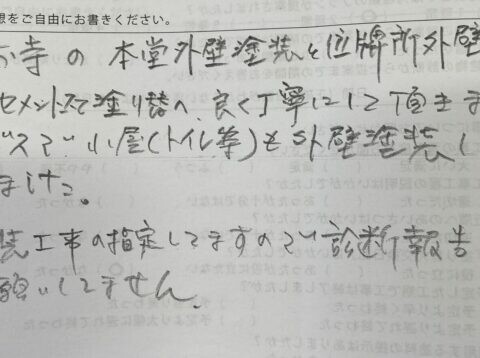 想をご自由にお書きください。
お寺の本堂外壁塗装と位牌所外壁
セメント瓦で塗り替へ、良く丁寧にして頂きま
小屋(トイレ等)も外壁塗装し
ました。
装工事の指定してますので診断報告
願いしてません。